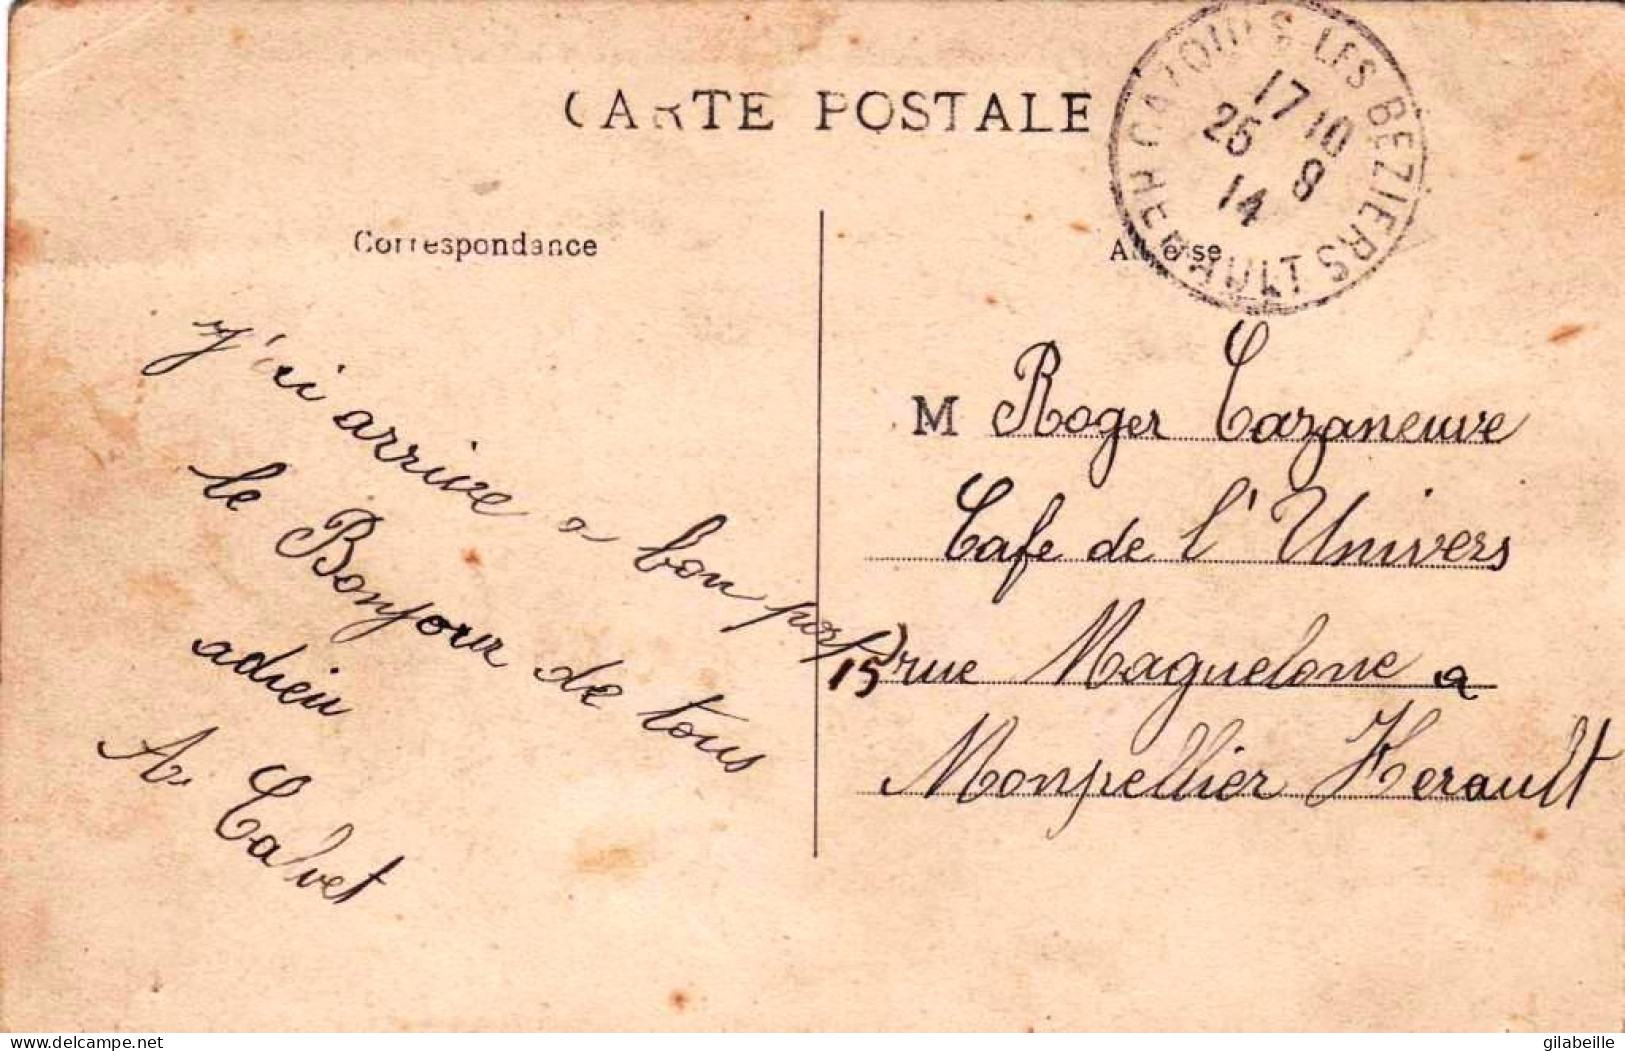 CARTE POSTALE
CAZOULS LES BEZIERS
HERAULT
17 10
25 8
14
Correspondance
Adresse
J'ai arrive a bon port
le Bonjour de tous
adieu
A Calvet
M Roger Cazaneuve
Cafe de l'Univers
15 rue Maguelone a
Monpellier Herault
delcampe.net
gilabeille